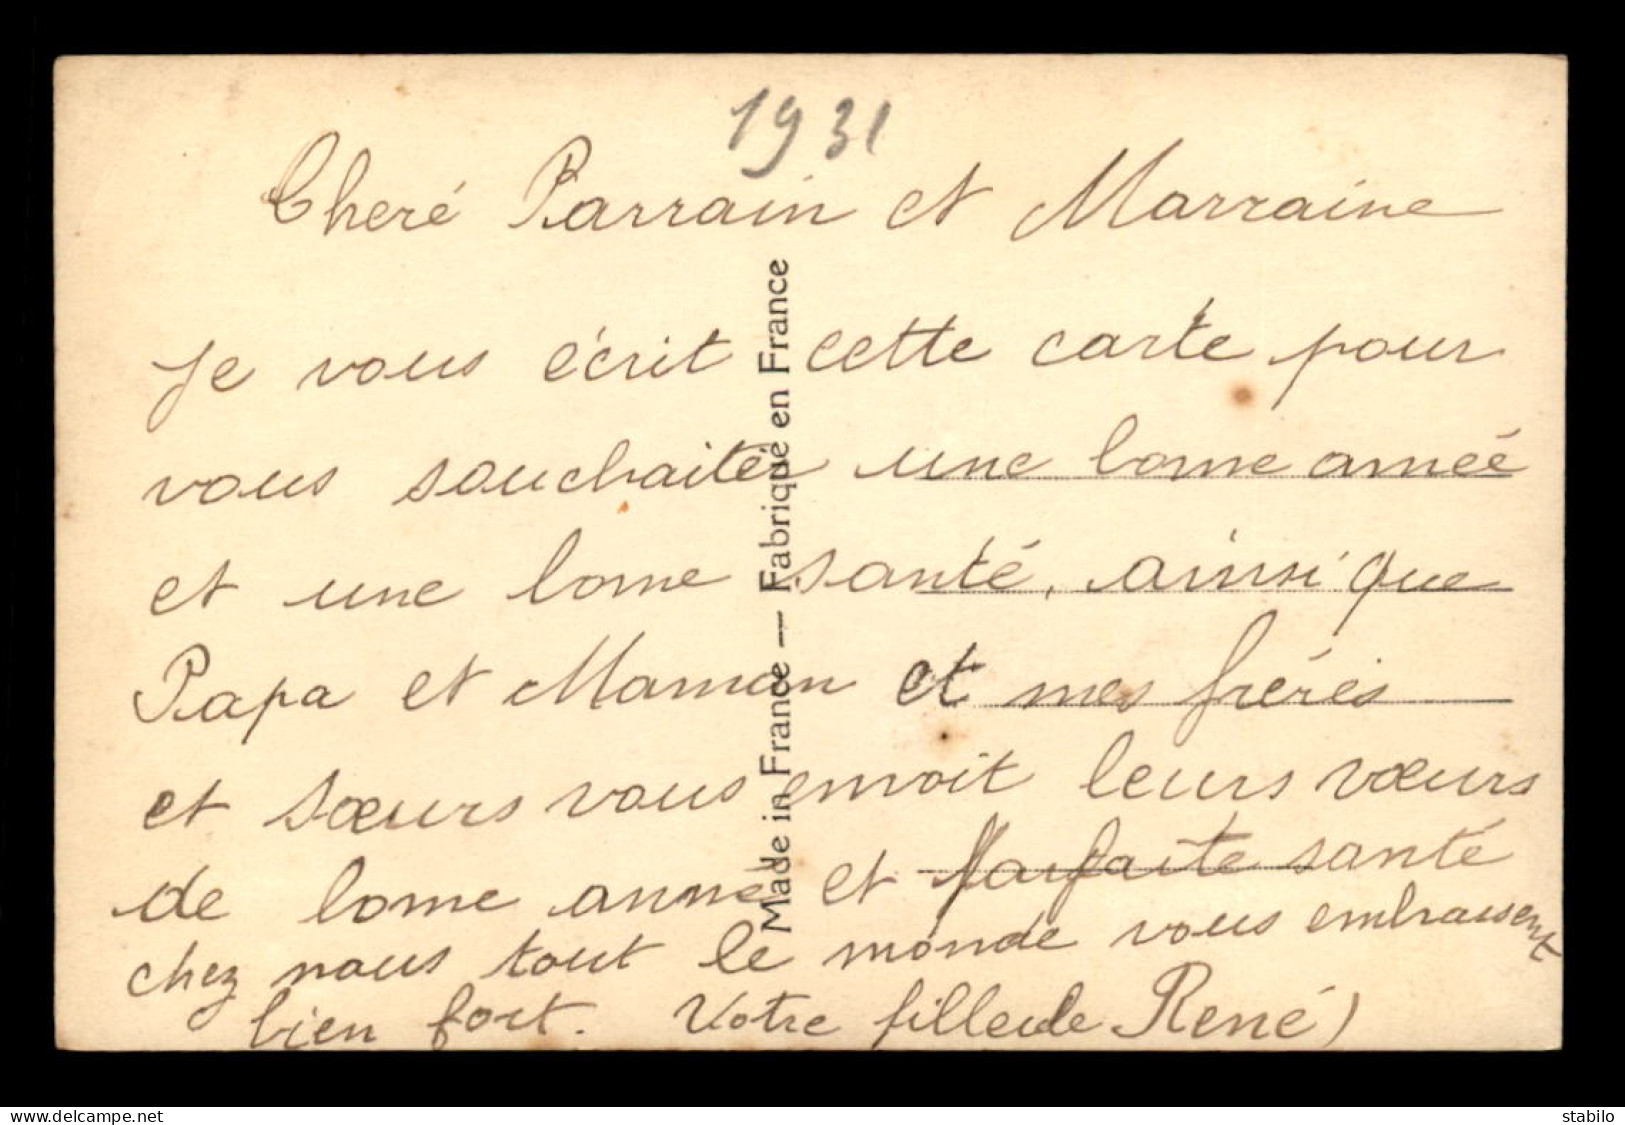 1931
Cheré Parrain et Marraine
Je vous écrit cette carte pour
vous souchaiter une bonne anneé
et une bonne santé, ainsi que
Papa et Maman et mes fréres
et sœurs vous envoit leurs vœurs
de bonne anneé et Parfaite santé
chez nous tout le monde vous embrassent
bien fort. Votre filleule René
Made in France — Fabriqué en France
delcampe.net
stabilo